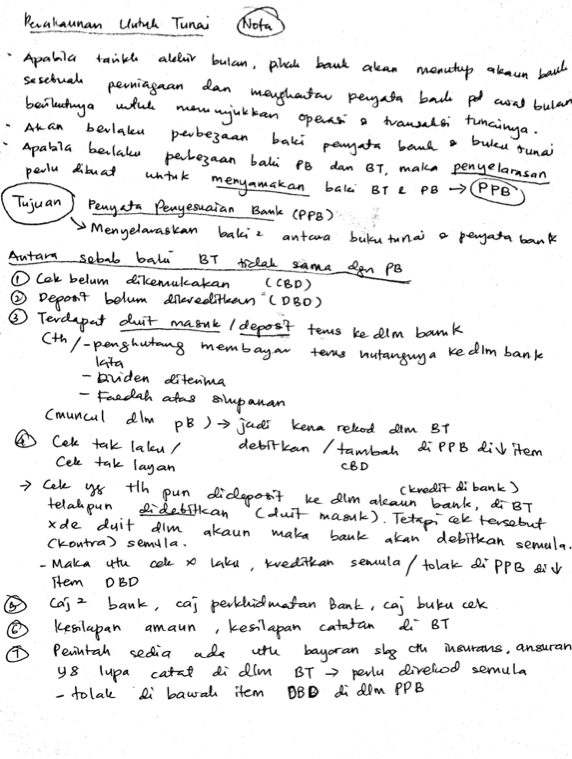 Perakaunan Untuk Tunai (Nota)
· Apabila tarikh akhir bulan, pihak bank akan menutup akaun bank
sesebuah perniagaan dan menghantar penyata bank pd awal bulan
berikutnya untuk menunjukkan operasi & transaksi tunainya.
· Akan berlaku perbezaan baki penyata bank & buku tunai
· Apabila berlaku perbezaan baki PB dan BT, maka penyelarasan
perlu dibuat untuk menyamakan baki BT & PB → (PPB)
Tujuan Penyata Penyesuaian Bank (PPB)
↳ Menyelaraskan baki2 antara buku tunai & penyata bank
Antara sebab baki BT tidak sama dgn PB
① Cek belum dikemukakan (CBD)
② Deposit belum dikreditkan (DBD)
③ Terdapat duit masuk / deposit terus ke dlm bank
Cth / - penghutang membayar terus hutangnya ke dlm bank
kita
- Dividen diterima
- Faedah atas simpanan
(muncul dlm PB) → jadi kena rekod dlm BT
④ Cek tak laku / debitkan / tambah di PPB di ↓ item
Cek tak layan CBD
→ Cek yg tlh pun dideposit ke dlm akaun bank, (kredit di bank) di BT
telahpun didebitkan (duit masuk). Tetapi cek tersebut
xde duit dlm akaun maka bank akan debitkan semula.
(kontra) semula.
- Maka utu cek x laku, kreditkan semula / tolak di PPB di ↓
item DBD
⑤ Caj2 bank, caj perkhidmatan Bank, caj buku cek
⑥ Kesilapan amaun, kesilapan catatan di BT
⑦ Perintah sedia ada utu bayaran sbg cth insurans, ansuran
yg lupa catat di dlm BT → perlu direkod semula
- tolak di bawah item DBD di dlm PPB